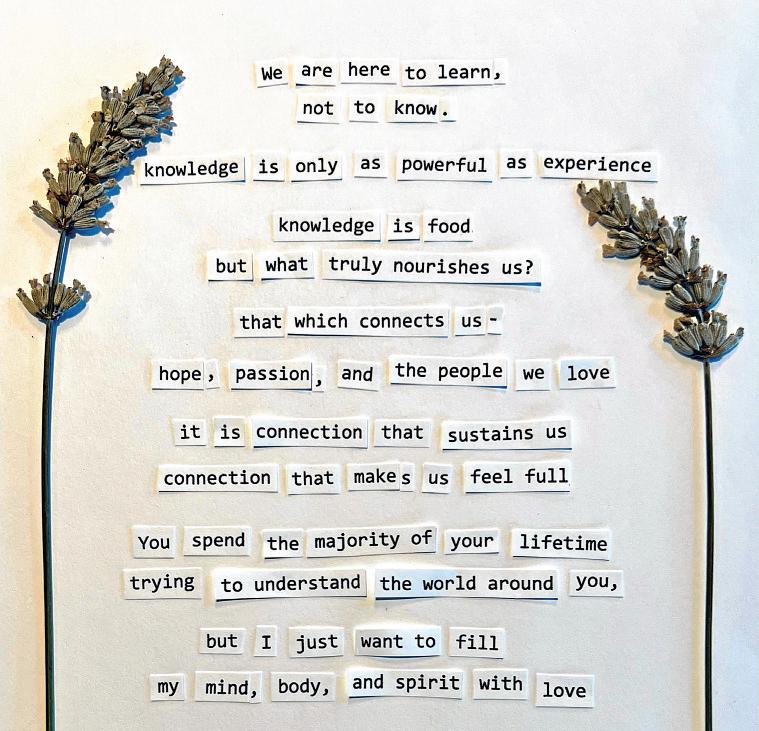 We are here to learn,
not to know.
knowledge is only as powerful as experience
knowledge is food
but what truly nourishes us?
that which connects us-
hope, passion, and the people we love
it is connection that sustains us
connection that makes us feel full
You spend the majority of your lifetime
trying to understand the world around you,
but I just want to fill
my mind, body, and spirit with love